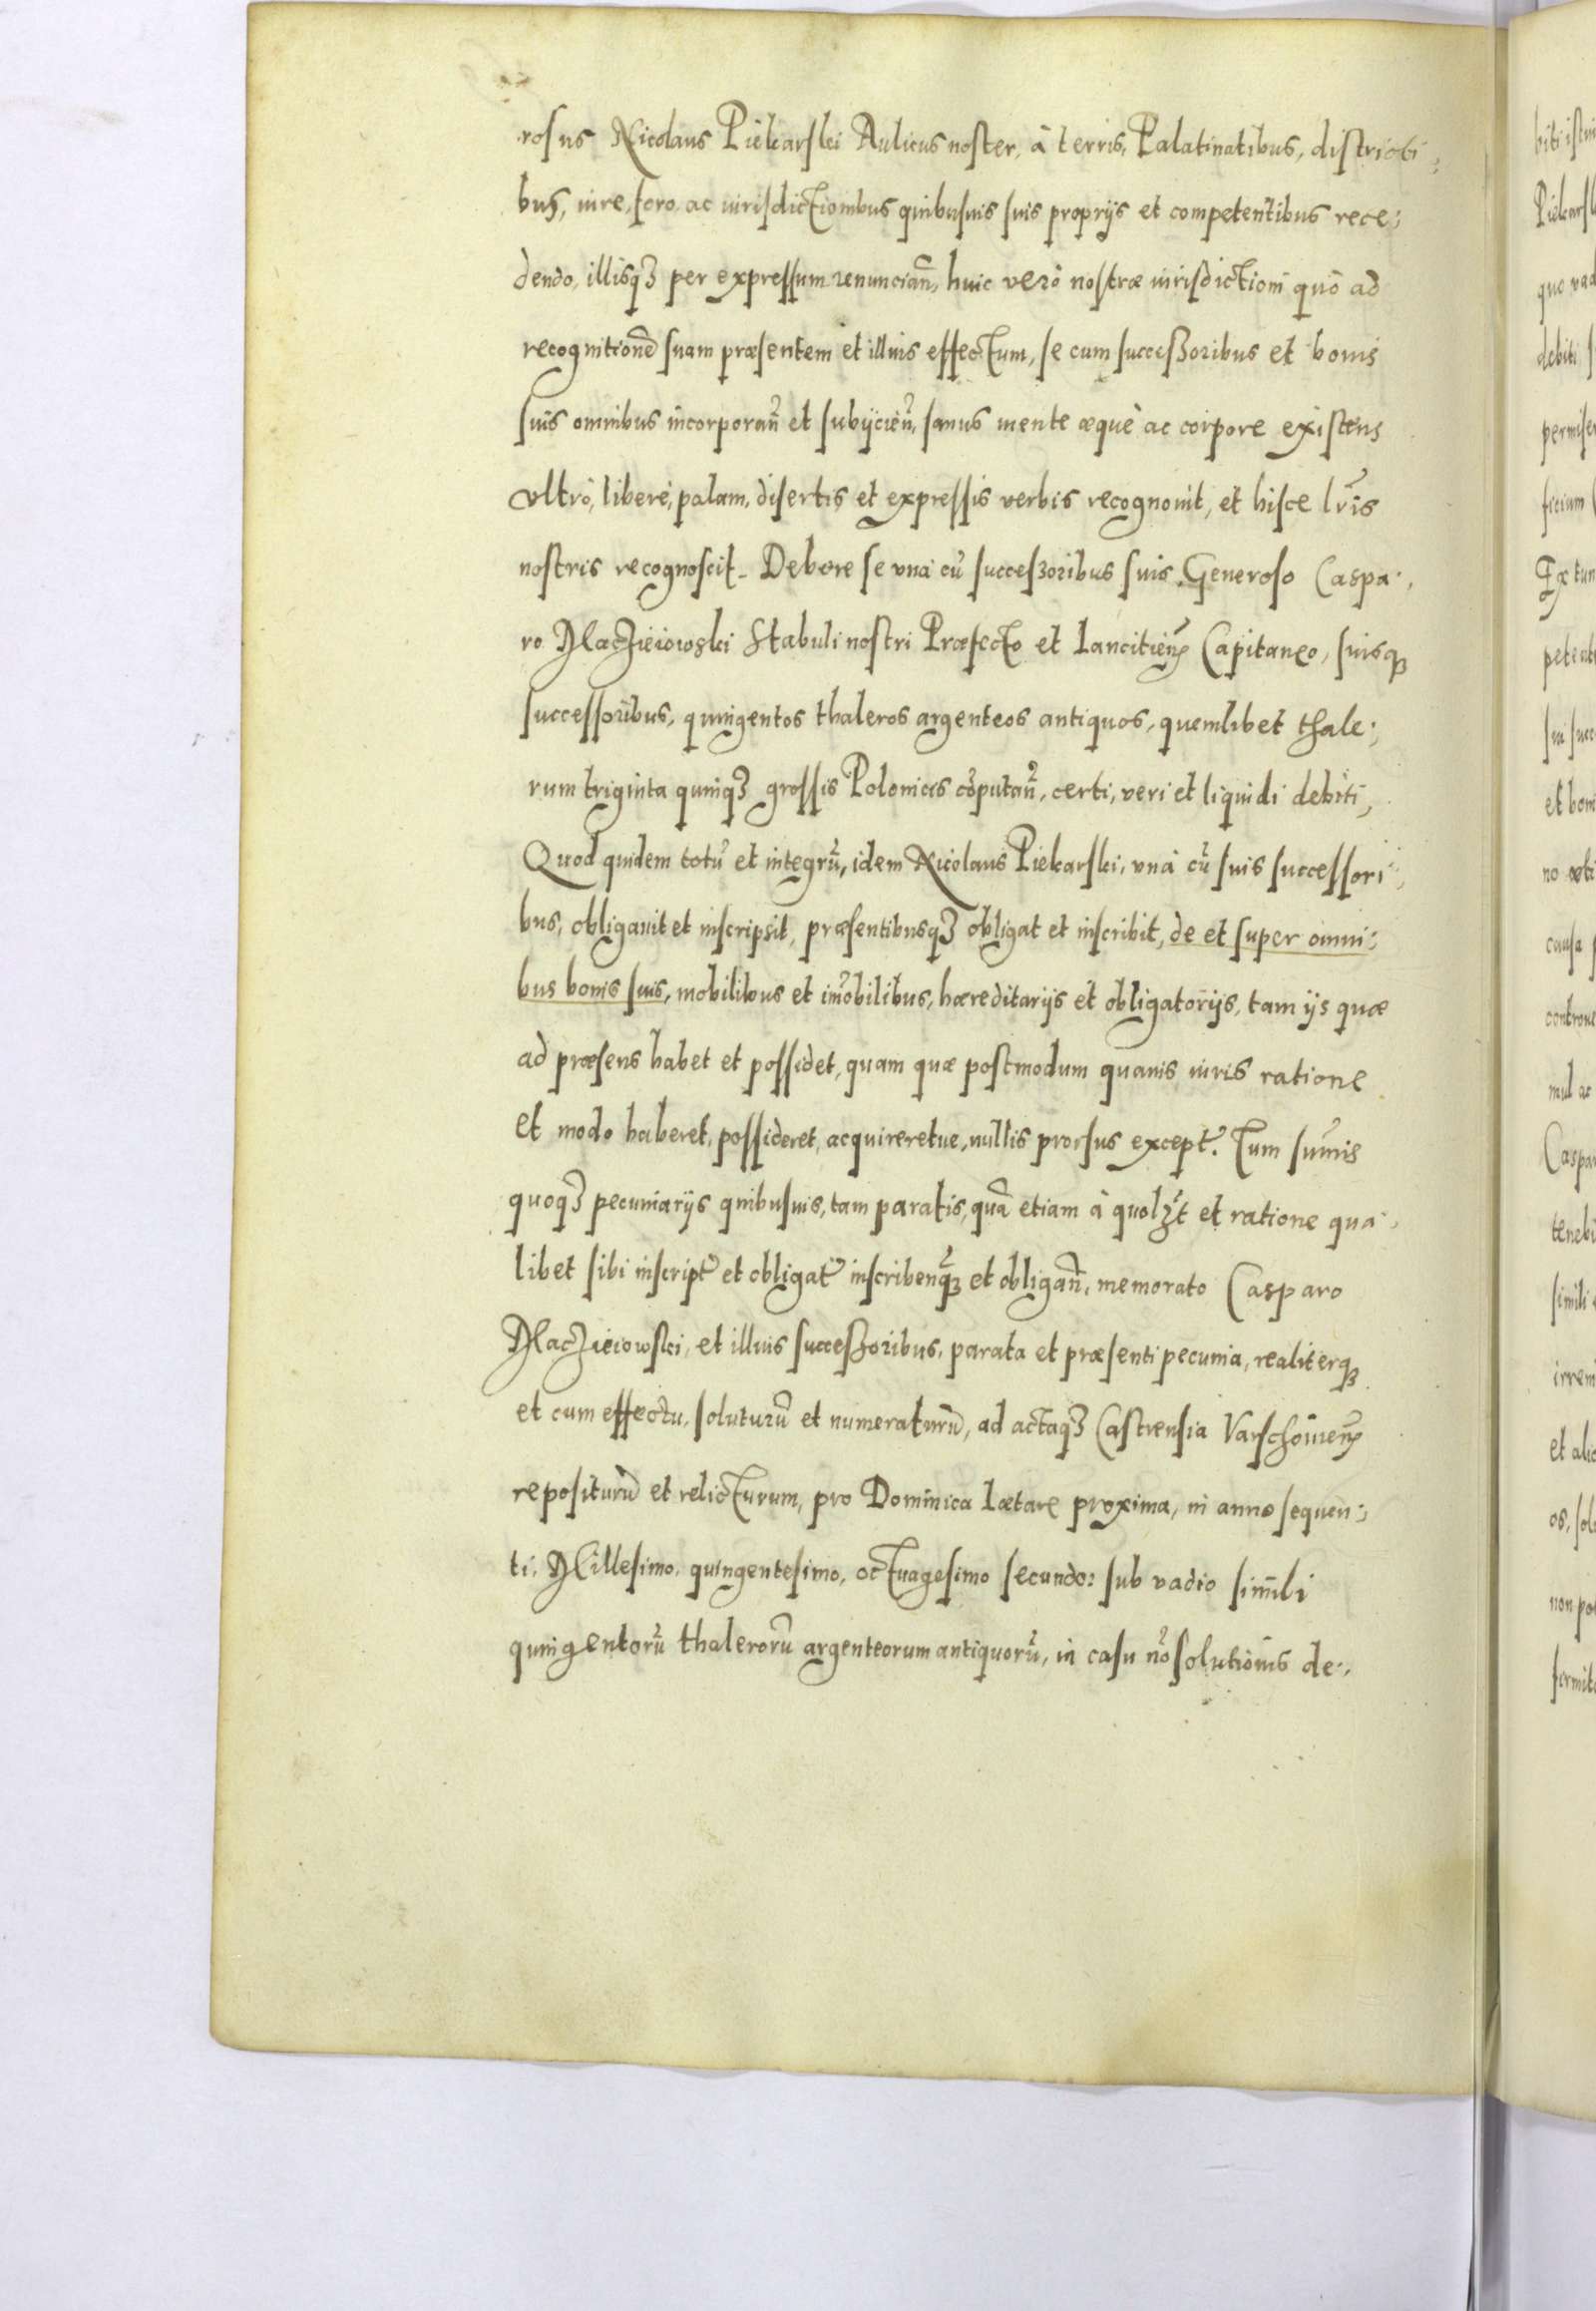 rosus Nicolaus Piekarski Aulicus noster, à terris, Palatinatibus, districti:
bus, iure, foro, ac iurisdictionibus quibusuis suis proprijs et competentibus rece:
dendo, illisq3 per expressum renuncian̄, huic verò nostræ iurisdictioni quò ad
recognitionē suam præsentem et illius effectum, se cum successoribus et bonis
suis omnibus incorporan̄ et subijcien̄, sanus mente æquè ac corpore existens
vltrò, liberè, palam, disertis et expressis verbis recognouit, et hisce lr̄is
nostris recognoscit. Debere se vnà cū successoribus suis Generoso Caspa:
ro Maczieiowski Stabuli nostri Præfecto et Lancitien̄ Capitaneo, suisq3
successoribus, quingentos thaleros argenteos antiquos, quemlibet thale:
rum triginta quinq3 grossis Polonicis cōputan̄, certi, veri et liquidi debiti,
Quod quidem totū et integrū, idem Nicolaus Piekarski, vnà cū suis successori:
bus, obligauit et inscripsit, præsentibusq3 obligat et inscribit, de et super omni:
bus bonis suis, mobilibus et im̄obilibus, hæreditarijs et obligatorijs, tam ijs quæ
ad præsens habet et possidet, quam quæ postmodum quauis iuris ratione
et modo haberet, possideret, acquireretue, nullis prorsus except̄. Tum sum̄is
quoq3 pecuniarijs quibusuis, tam paratis, quā etiam à quolȝt et ratione qua:
libet sibi inscript̄ et obligat̄ inscriben̄q3 et obligan̄, memorato Casparo
Maczieiowski, et illius successoribus, parata et præsenti pecunia, realiterq3
et cum effectu, soluturū et numeraturū, ad actaq3 Castrensia Varschouien̄
repositurū et relicturum, pro Dominica Lætare proxima, in anno sequen:
ti, Millesimo, quingentesimo, octuagesimo secundo: sub vadio simili
quingentorū thalerorū argenteorum antiquorū, in casu nō solutionis de: